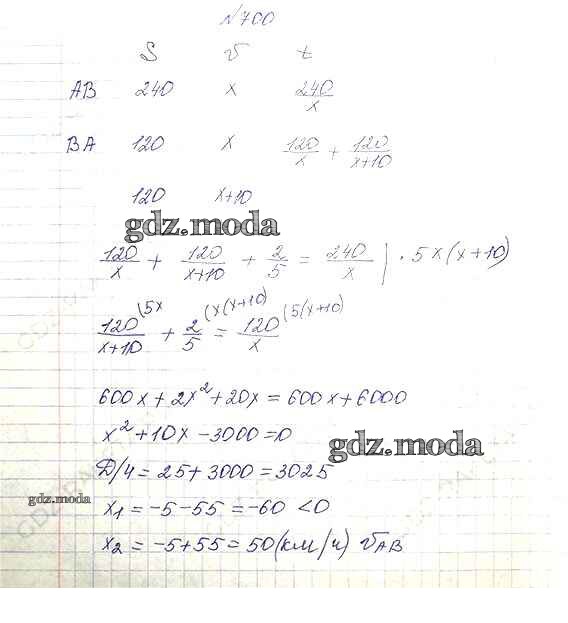 №700
S v t
AB 240 x 240/x
BA 120 x 120/x + 120/(x+10)
120 x+10
gdz.moda
120/x + 120/(x+10) + 2/5 = 240/x | · 5x(x+10)
120/(x+10) (5x + 2/5 (x(x+10) = 120/x (5(x+10)
600x + 2x² + 20x = 600x + 6000
x² + 10x - 3000 = 0
gdz.moda
D/4 = 25 + 3000 = 3025
gdz.moda
x₁ = -5 - 55 = -60 < 0
x₂ = -5 + 55 = 50 (км/ч) v AB